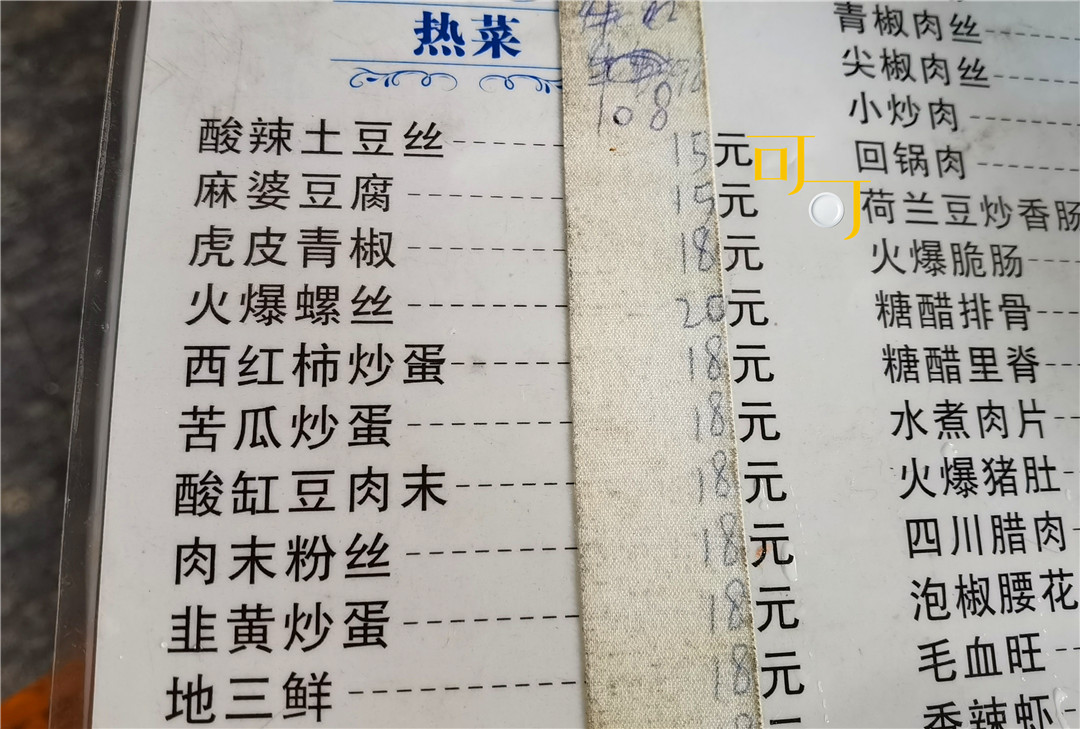 热菜
108
酸辣土豆丝 15元
麻婆豆腐 15元
虎皮青椒 18元
火爆螺丝 20元
西红柿炒蛋 18元
苦瓜炒蛋 18元
酸缸豆肉末 18元
肉末粉丝 18元
韭黄炒蛋 18元
地三鲜 18元
青椒肉丝
尖椒肉丝
小炒肉
回锅肉
荷兰豆炒香肠
火爆脆肠
糖醋排骨
糖醋里脊
水煮肉片
火爆猪肚
四川腊肉
泡椒腰花
毛血旺
香辣虾
可